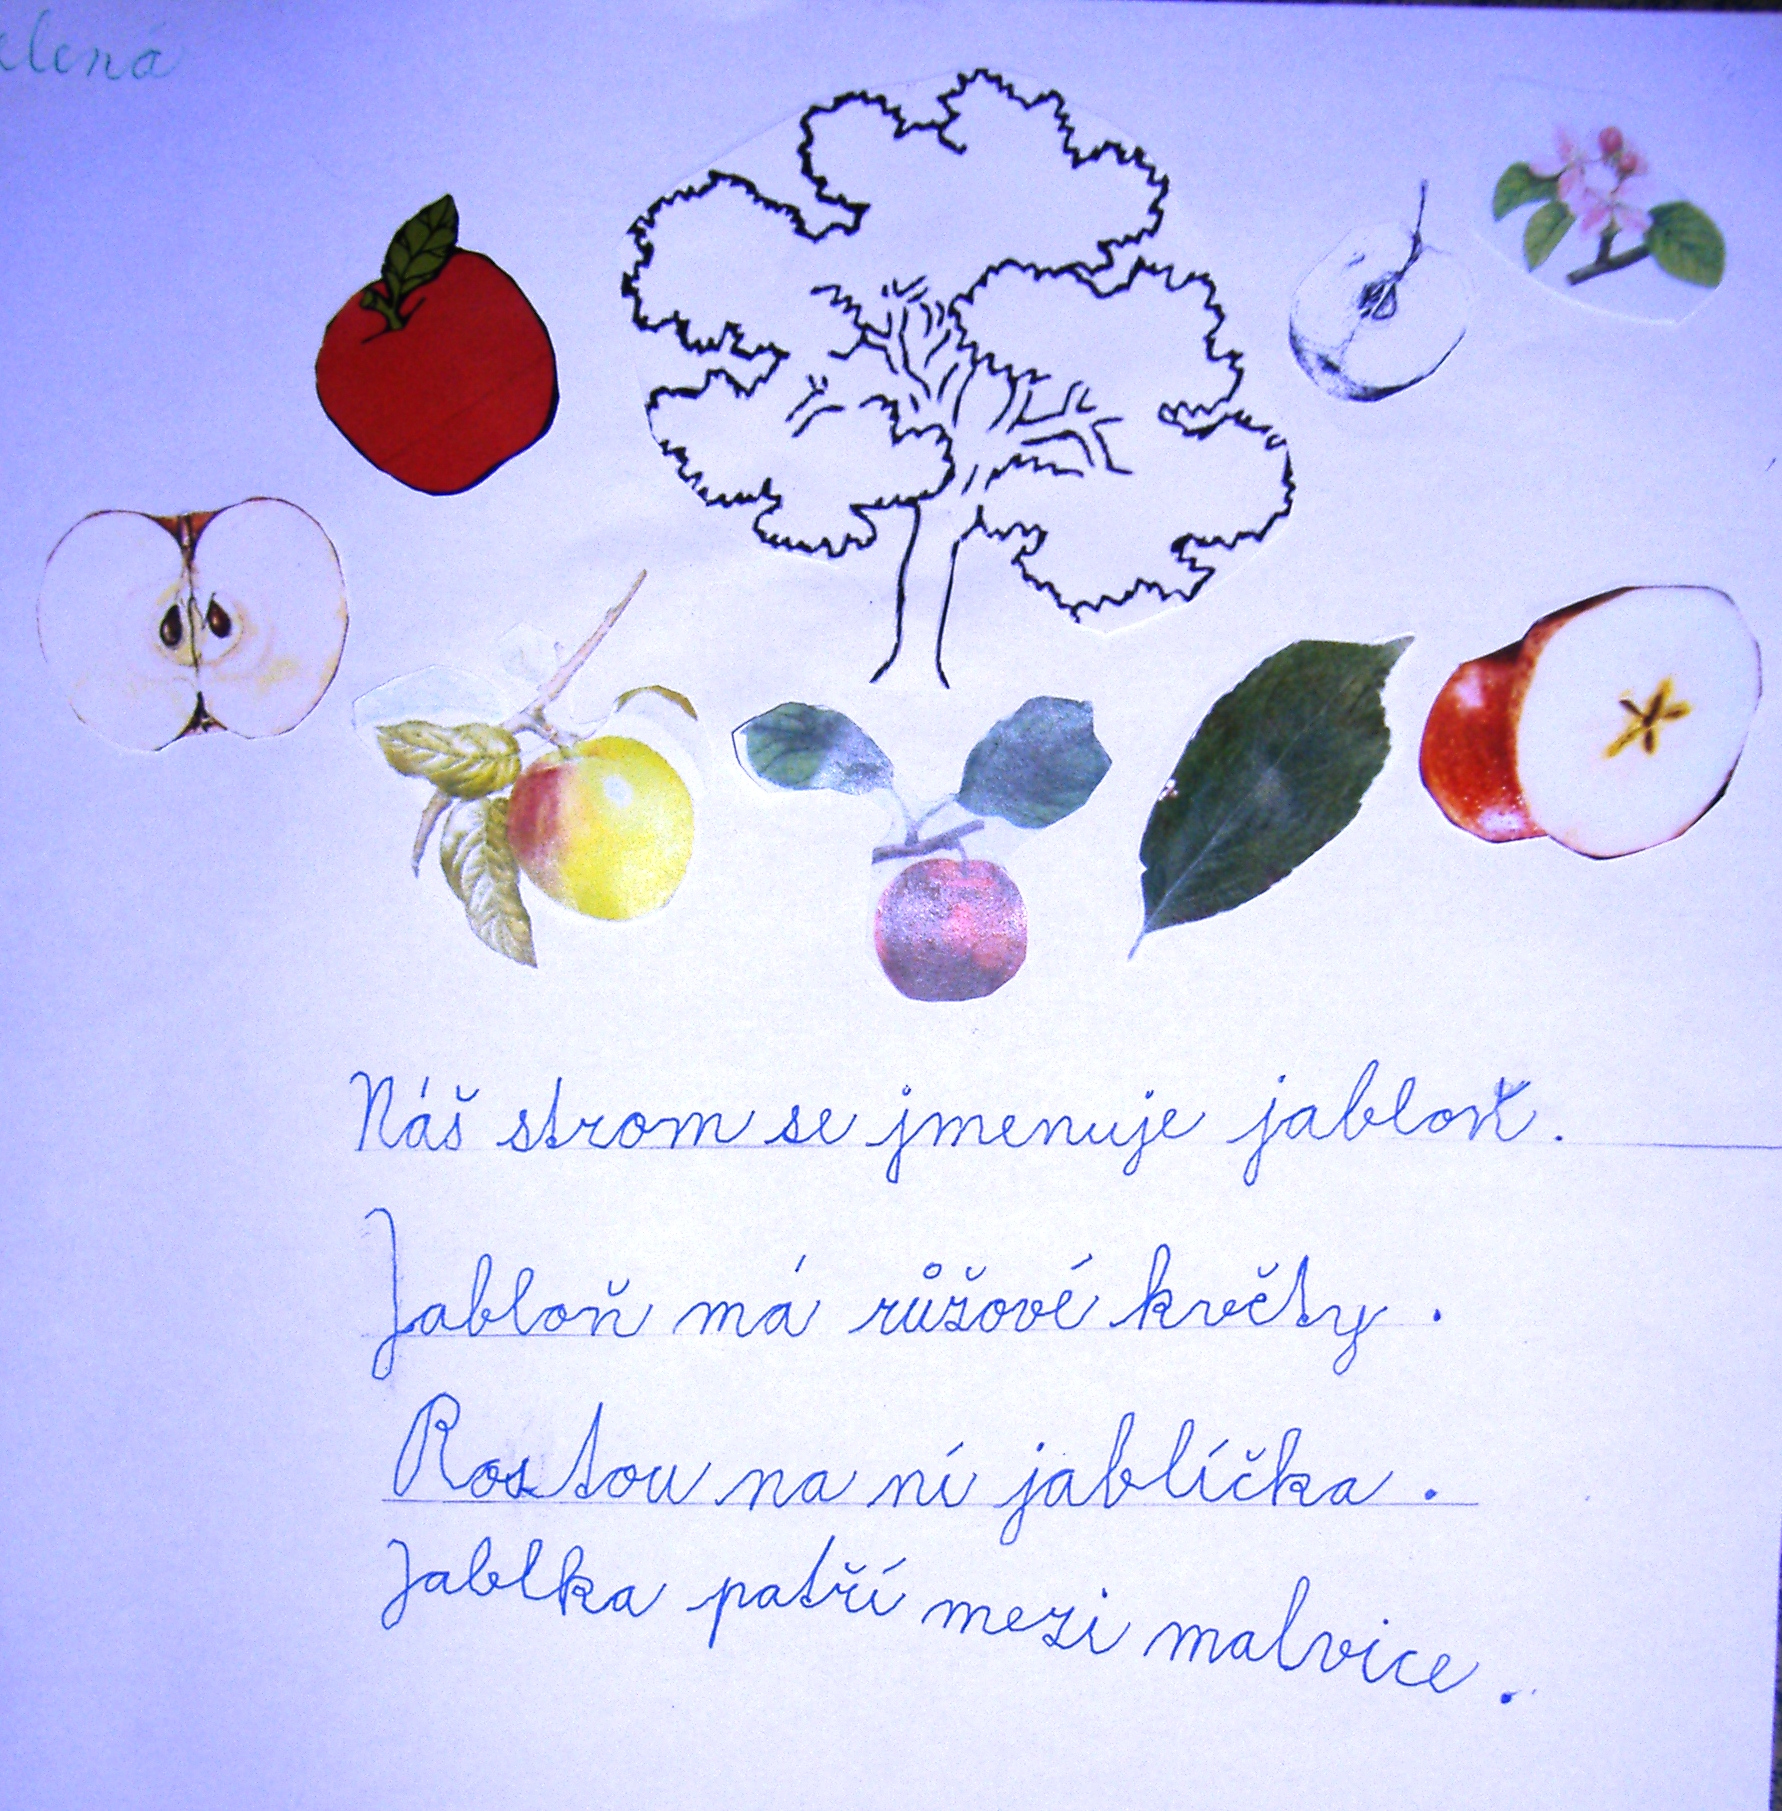 Náš strom se jmenuje jabloň.
Jabloň má růžové květy.
Rostou na ní jablíčka.
Jablka patří mezi malvice.